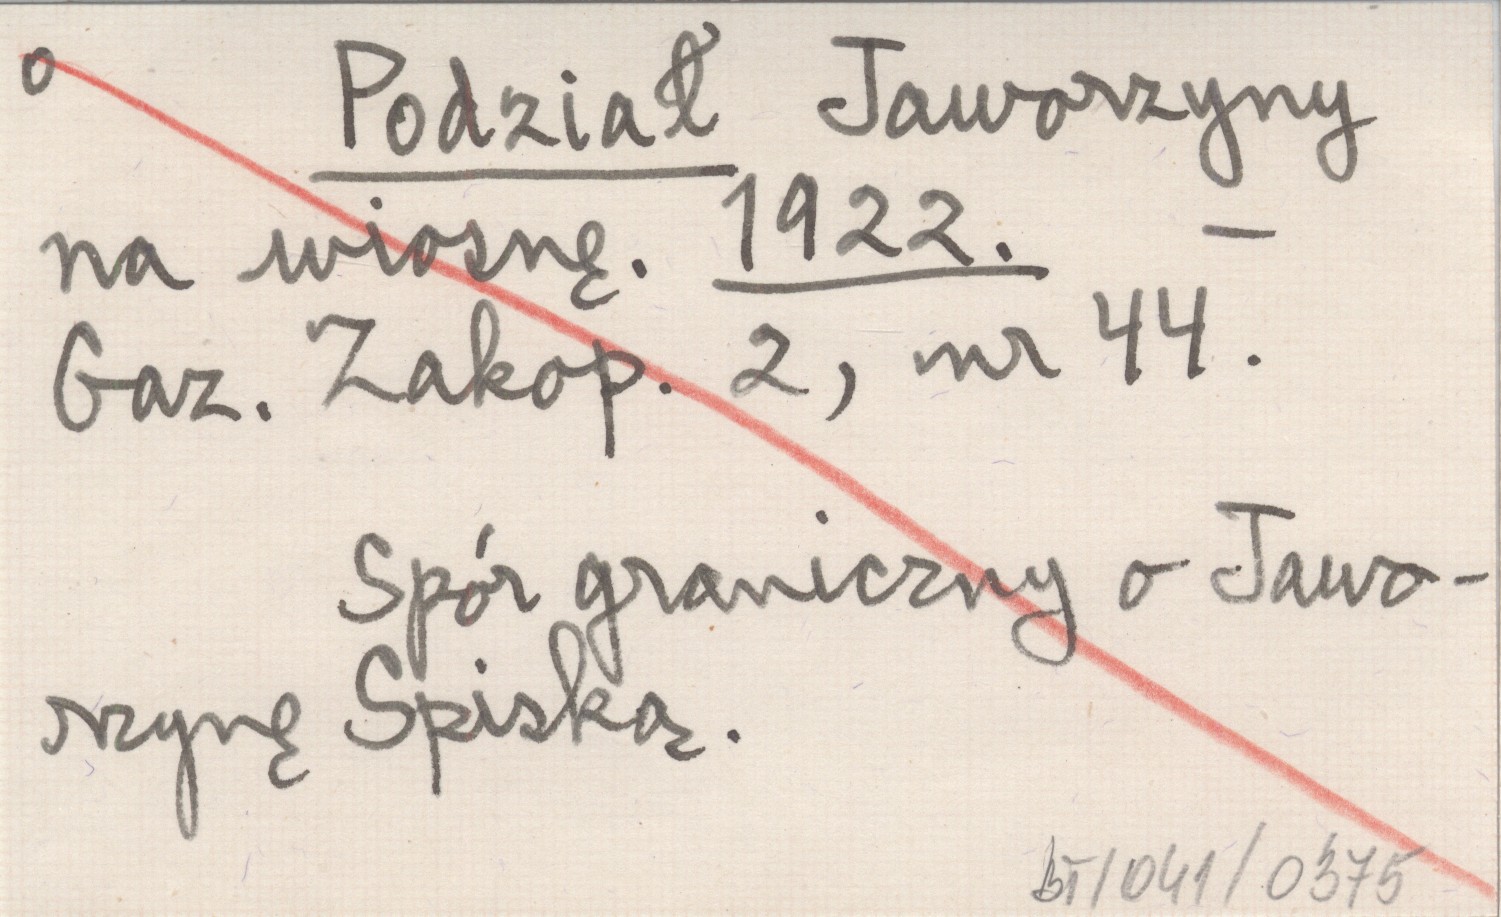 o Podział Jaworzyny
na wiosnę. 1922. —
Gaz. Zakop. 2, nr 44.
Spór graniczny o Jawo-
rzynę Spiską.
BT/041/0375